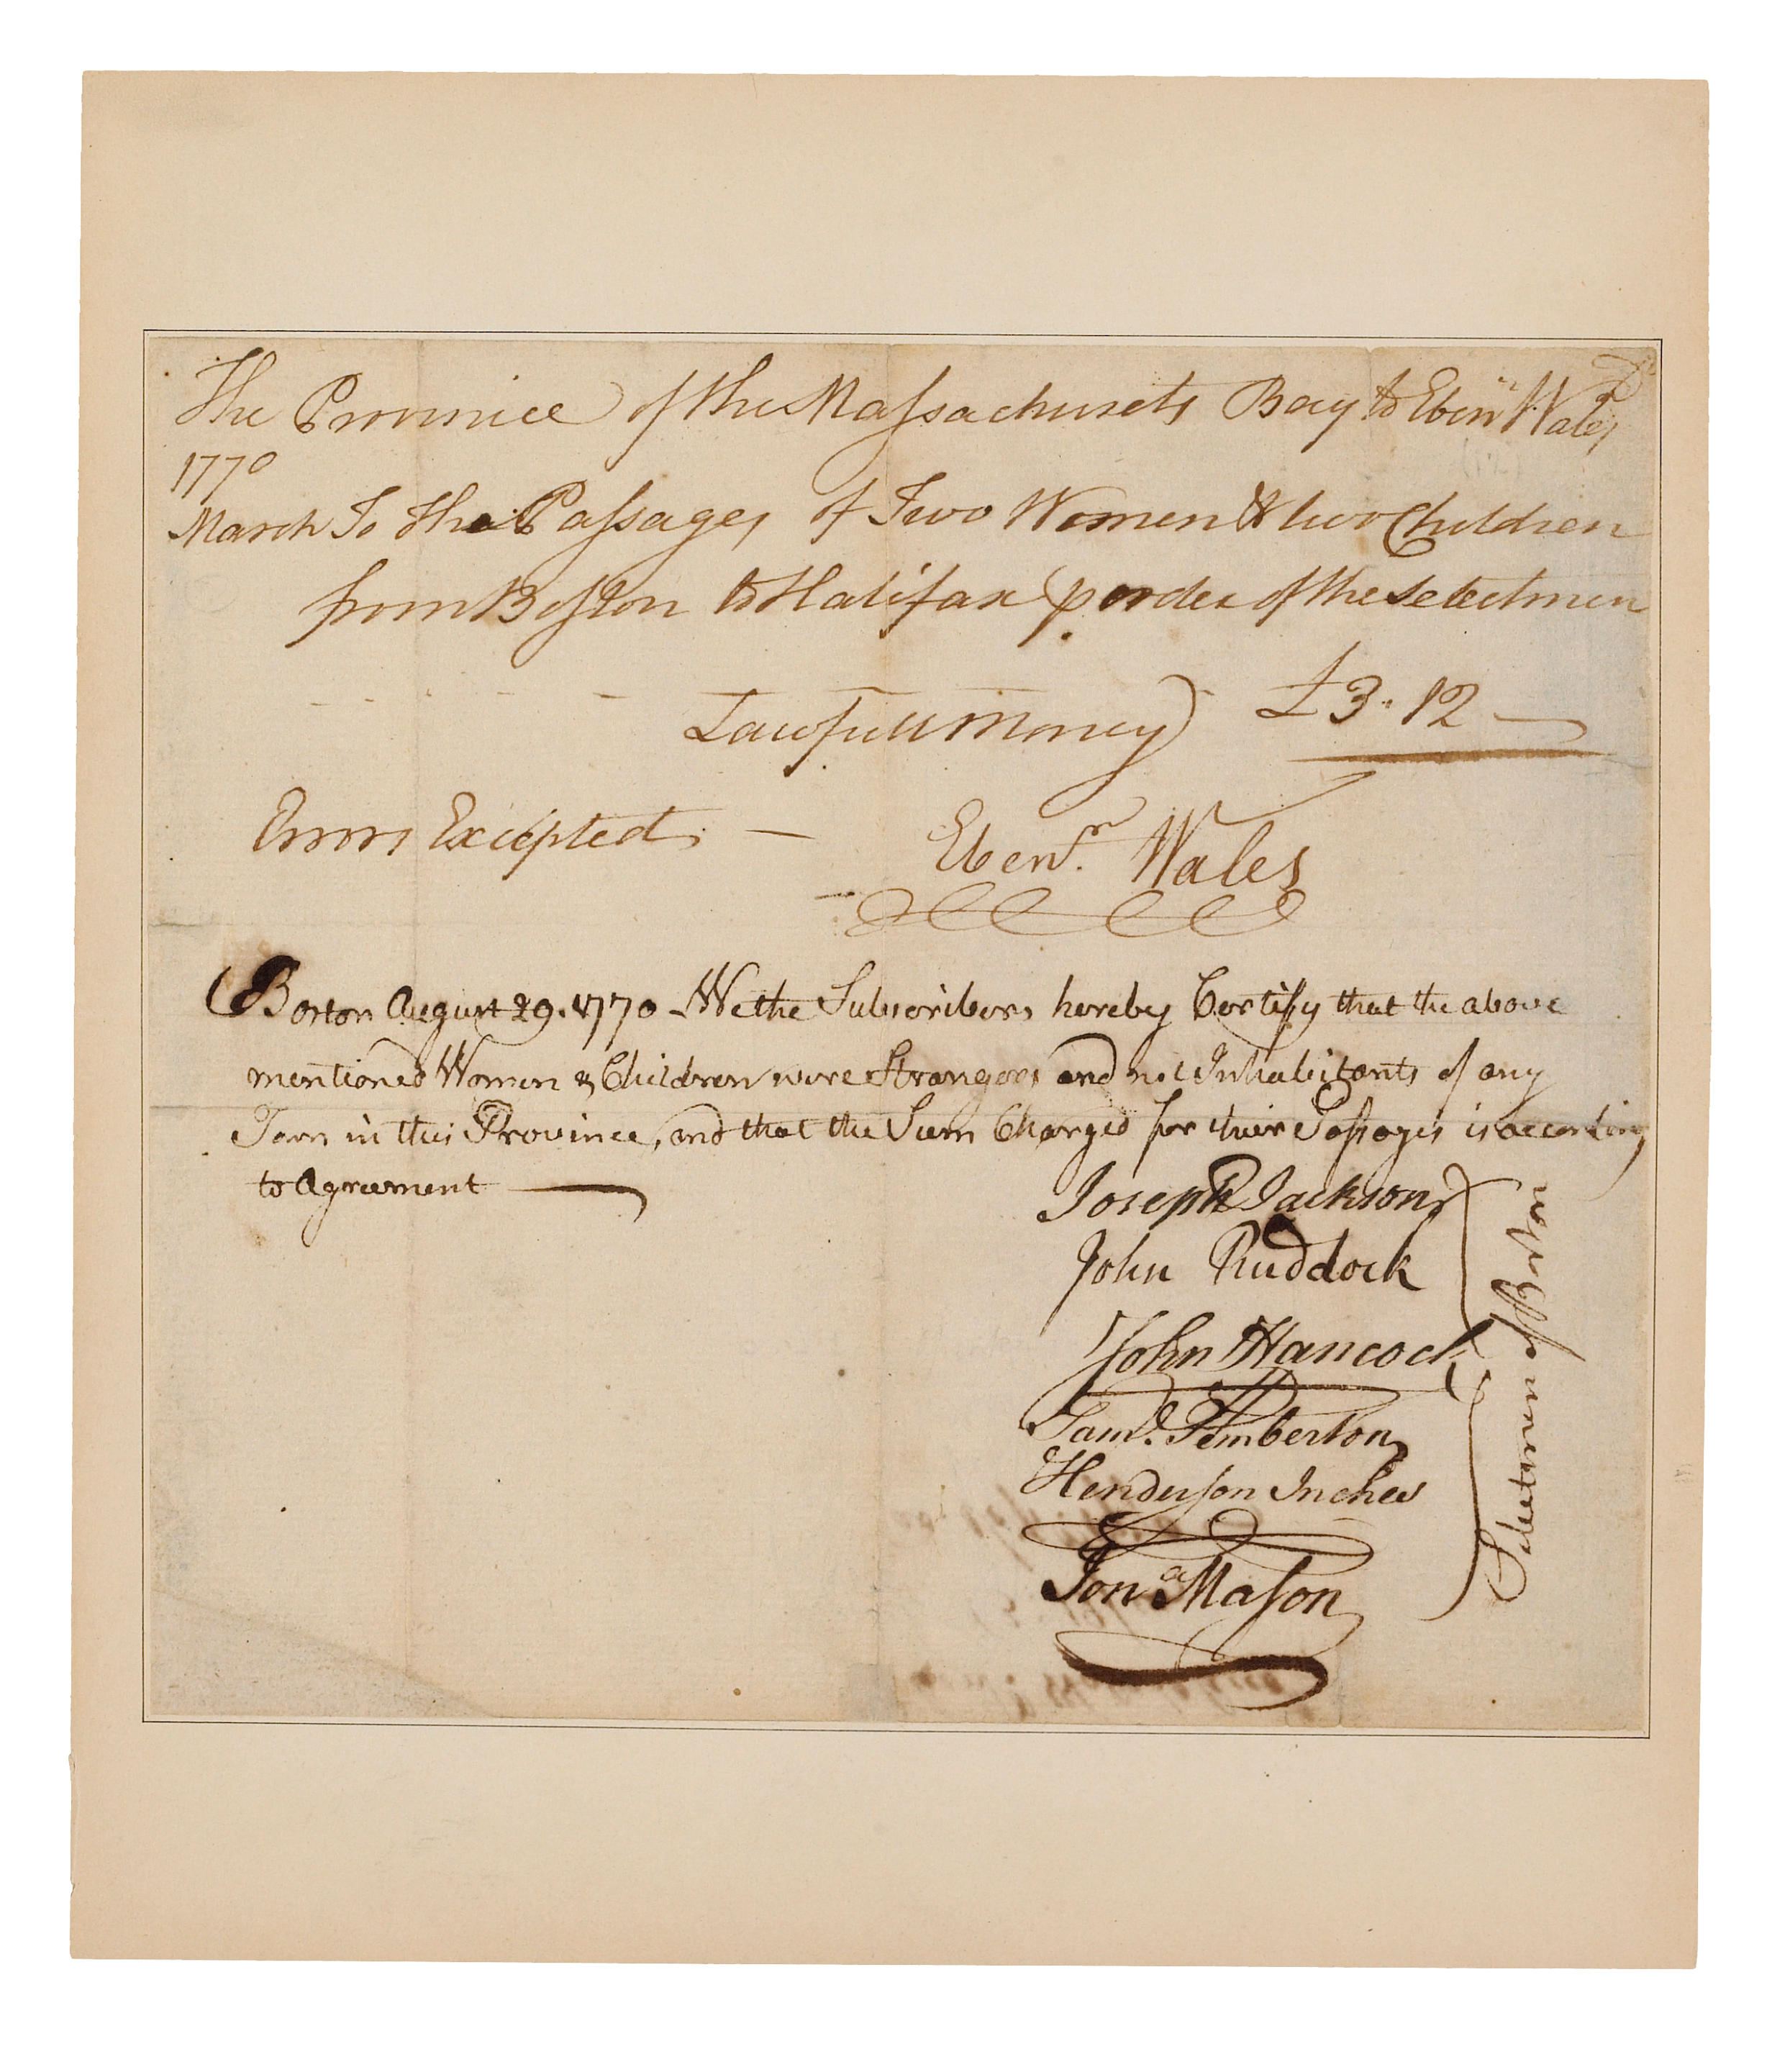 The Province of the Massachusets Bay to Ebenr Wales Dr
1770
March To the Passages of Two Women & two Children
from Boston to Halifax p order of the Selectmen
Lawfull Money £3.12
Errors Excepted
Ebenr. Wales
Boston August 29. 1770 We the Subscribers hereby Certify that the above
mentioned Women & Children were Strangers and not Inhabitants of any
Town in this Province, and that the Sum Charged for their Passages is according
to Agreement
Joseph Jackson
John Ruddock
John Hancock
Saml. Pemberton
Henderson Inches
Jona Mason
Selectmen of Boston